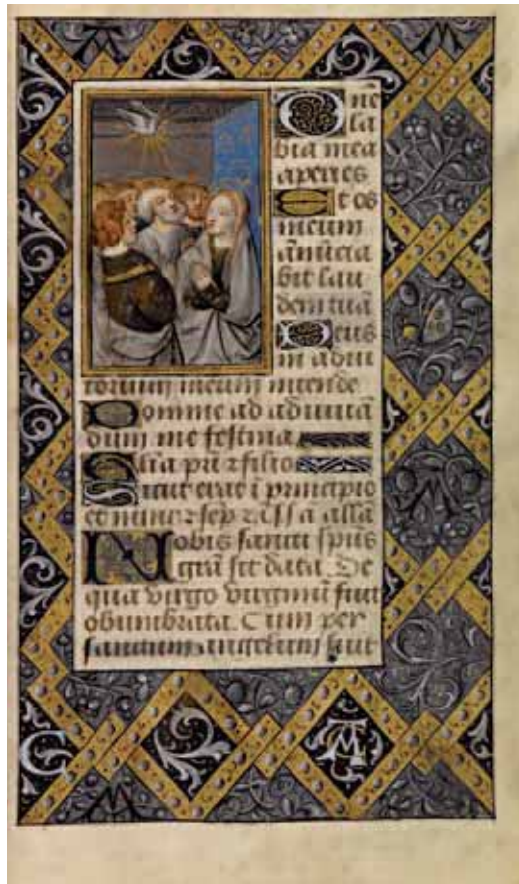 One
la
bia mea
aperies
Et os
meum
ānūcia
bit lau
dem tuā
Deus
in adiu
torium meum intende
Domine ad adiuvā
dum me festina
Glīa prī ⁊ filio
Sicut erat ī principio
et nunc ⁊ sēp ⁊ ī
Nobis sancti spūs
grā sit data De
qua virgo virginū fuit
obumbrata. Cum per
sanctum angelum fuit